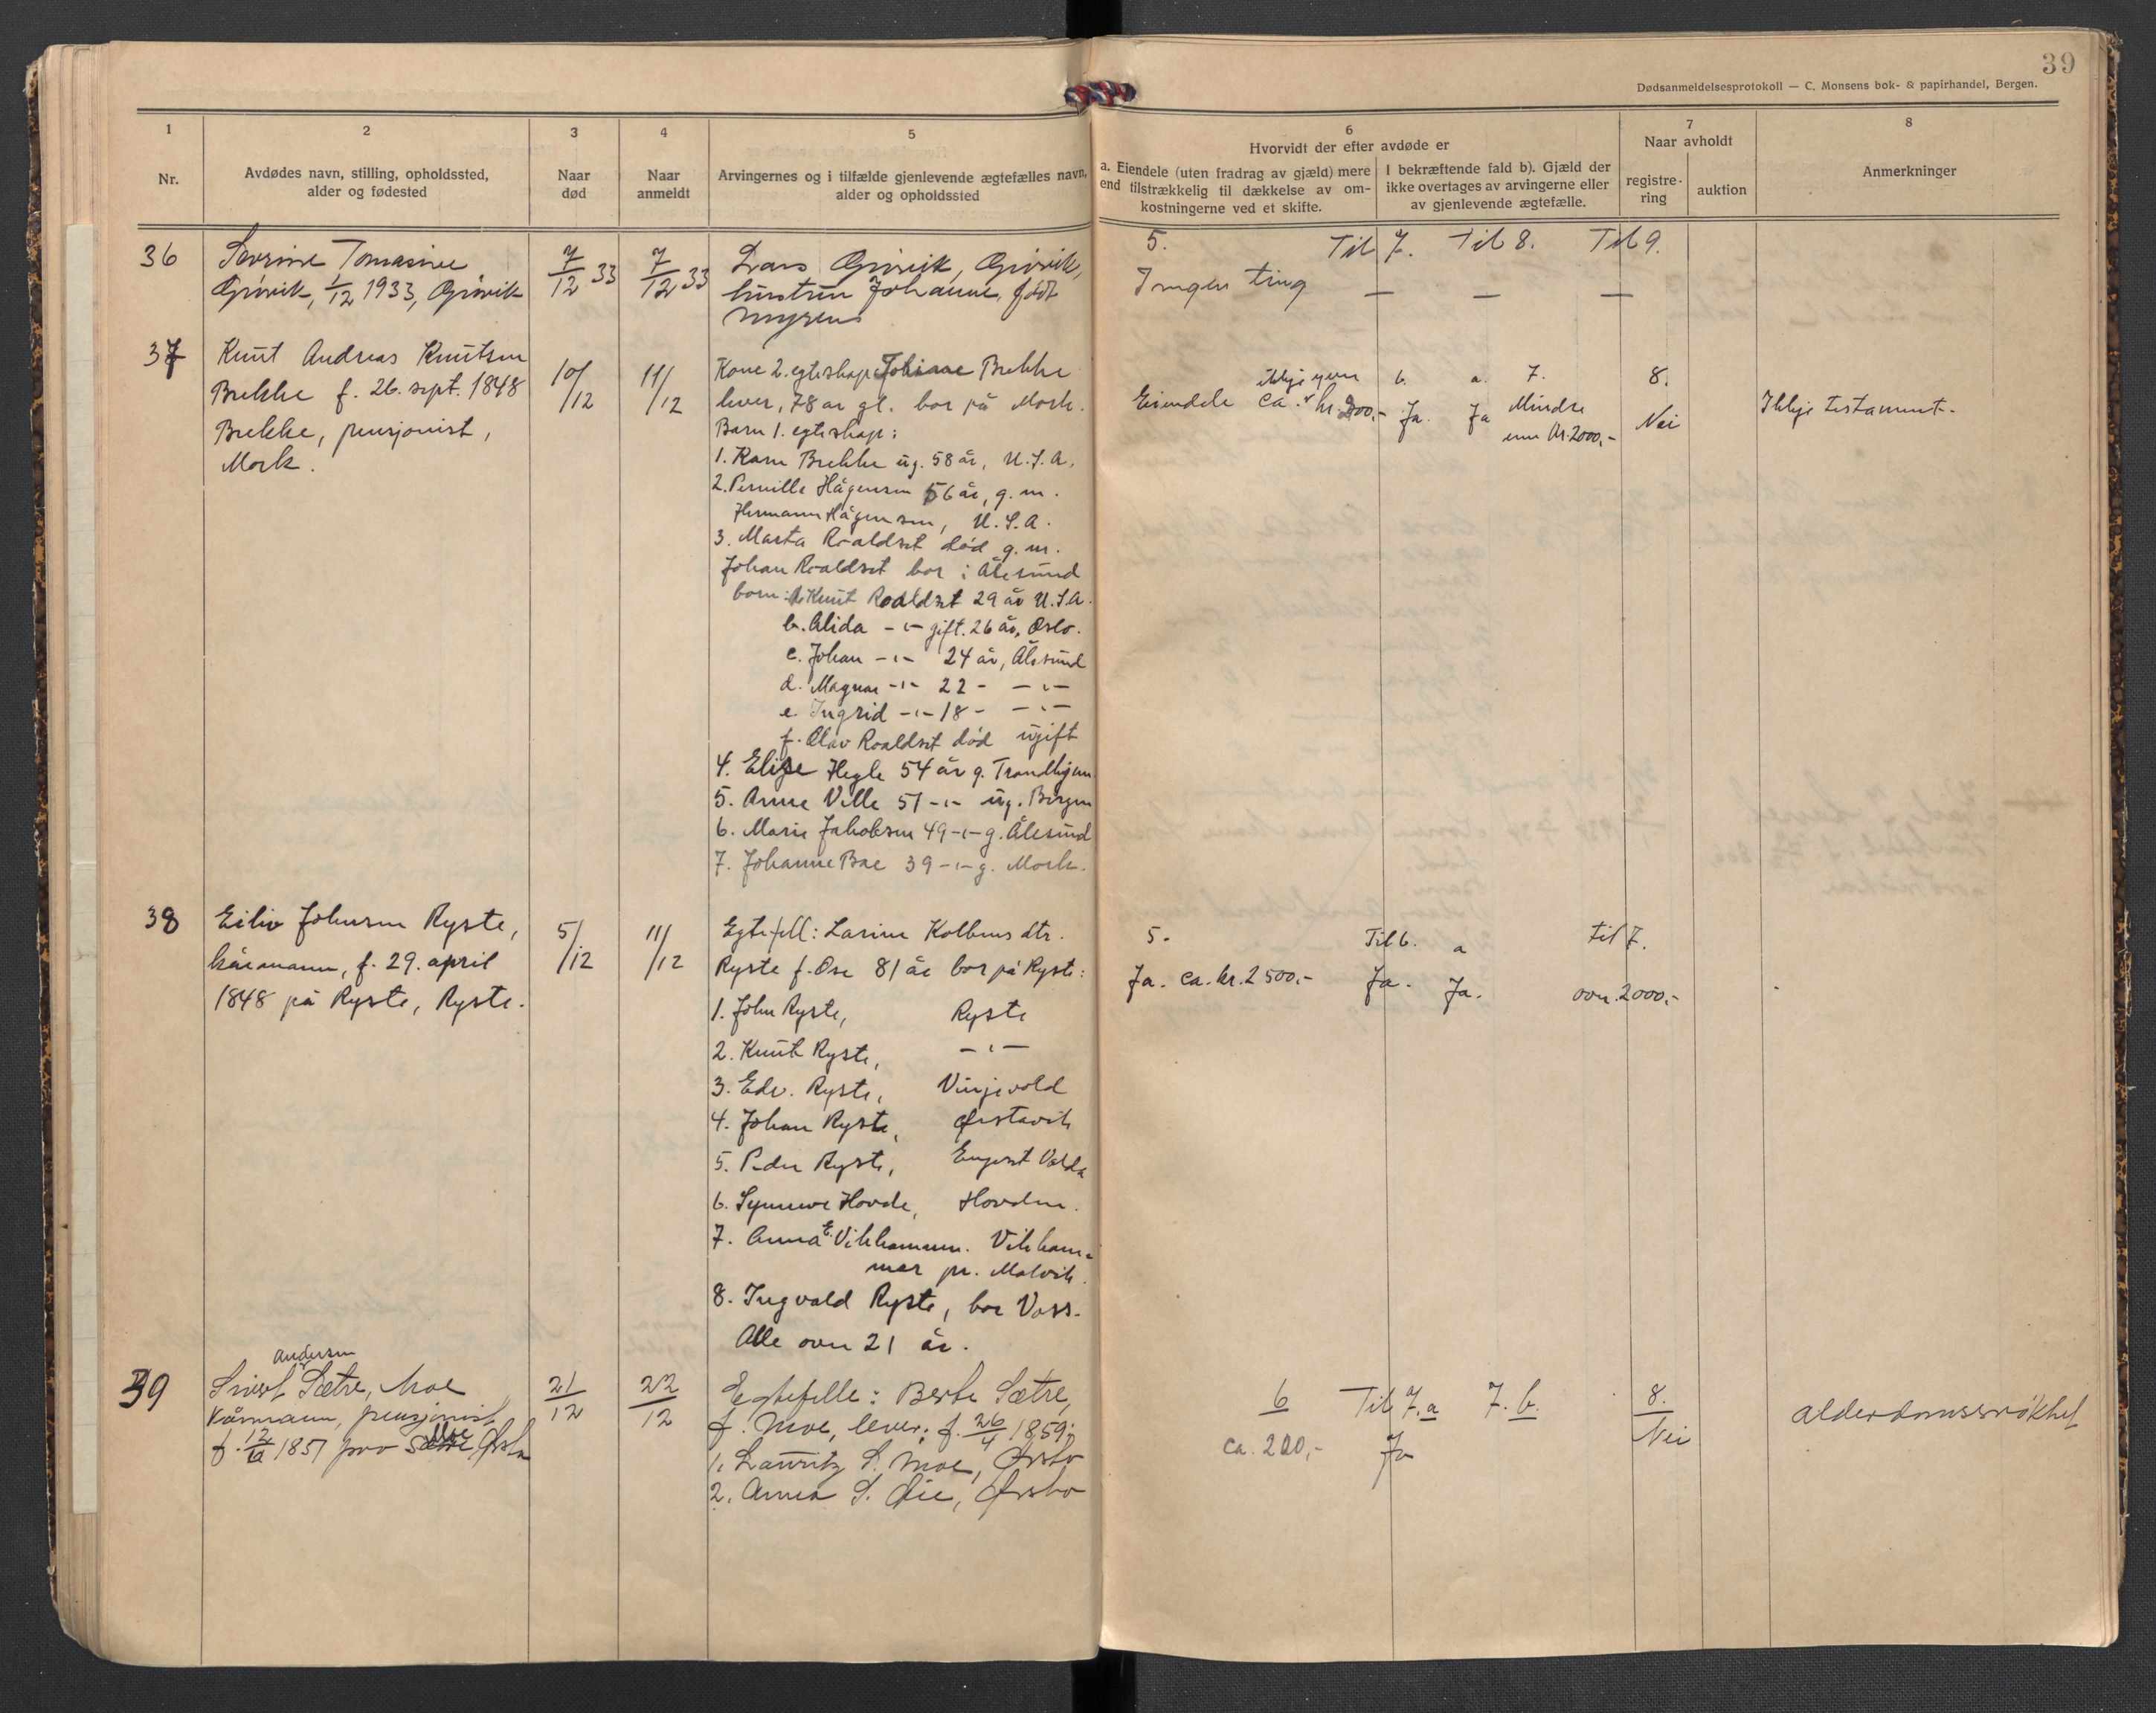 39
Dødsanmeldelsesprotokoll — C. Monsens bok- & papirhandel, Bergen.
1
Nr.
2
Avdødes navn, stilling, opholdssted,
alder og fødested
3
Naar
død
4
Naar
anmeldt
5
Arvingernes og i tilfælde gjenlevende ægtefælles navn,
alder og opholdssted
6
Hvorvidt der efter avdøde er
a. Eiendele (uten fradrag av gjæld) mere
end tilstrækkelig til dækkelse av om-
kostningerne ved et skifte.
I bekræftende fald b). Gjæld der
ikke overtages av arvingerne eller
av gjenlevende ægtefælle.
7
Naar avholdt
registre-
ring
auktion
8
Anmerkninger
36
Sevrine Tomasine
Grøvik, 1/12 1933, Grøvik
7/12 33
7/12 33
Lars Grøvik, Grøvik,
hustru Johanne, født
Myren
5. Til 7. Til 8. Til 9.
Ingen ting — — —
37
Knut Andreas Knutsen
Brekke f. 26. sept. 1848
Brekke, pensjonist,
Mork.
10/12
11/12
Kone 2. egteskap Johanne Brekke
lever, 78 år gl. bor på Mork.
Barn 1. egteskap:
1. Karn Brekke ug. 58 år, U.S.A.
2. Pernille Hågensen 56 år, g. m.
Hermann Hågensen, U.S.A.
3. Marta Roaldset død g. m.
Johan Roaldset bor i Ålesund
born: a. Knut Roaldset 29 år U.S.A.
b. Alida -"- gift. 26 år, Oslo.
c. Johan -"- 24 år, Ålesund
d. Magnar -"- 22 - -"-
e. Ingrid -"- 18 - -"-
f. Olav Roaldset død ugift
4. Elise Hegle 54 år g. Trondhjem
5. Anne Velle 51 -"- ug. Bergen
6. Marie Jakobsen 49 -"- g. Ålesund
7. Johanne Bae 39 -"- g. Mork.
ikkje yver 6. a. 7. 8.
Eiendele ca. kr. 200,- Ja. Ja Mindre
enn kr. 2000,- Nei
Ikkje testament.
38
Eiliv Johnsen Ryste,
kårmann, f. 29. april
1848 på Ryste, Ryste.
5/12
11/12
Egtefell: Larine Kolbens dtr.
Ryste f. Ose 81 år bor på Ryste:
1. John Ryste, Ryste
2. Knut Ryste, -"-
3. Edv. Ryste, Vinjevold
4. Johan Ryste, Ørstavik
5. Peder Ryste, Engeset Volda
6. Synnøve Hovde, Hovden.
7. Anna E. Vikhammer. Vikham-
mer pr. Malvik.
8. Ingvald Ryste, bor Voss.
Alle over 21 år.
5. Til 6. a til 7.
Ja. ca. kr. 2500,- Ja. Ja. over 2000,-
39
Andersen
Sivert Sætre, Moe
Kårmann, pensjonist
f. 12/6 1851 Moe Ørsta
21/12
22/12
Egtefelle: Berte Sætre,
f. Moe, lever: f. 26/4 1859:
1. Lauritz S. Moe, Ørsta
2. Anna S. Øie, Ørsta
6 Til 7. a 7. b. 8.
ca. 200,- Ja Nei